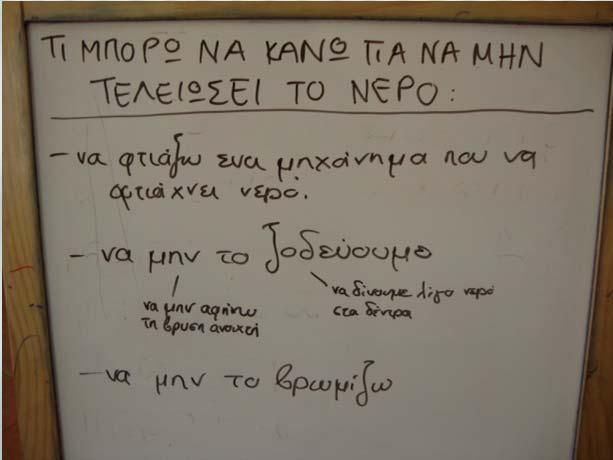 ΤΙ ΜΠΟΡΩ ΝΑ ΚΑΝΩ ΓΙΑ ΝΑ ΜΗΝ
ΤΕΛΕΙΩΣΕΙ ΤΟ ΝΕΡΟ:
- να φτιάξω ένα μηχάνημα που να
φτιάχνει νερό.
- να μην το ξοδεύουμε
να μην αφήνω
τη βρυση ανοιχτή
να δίνουμε λίγο νερό
στα δέντρα
- να μην το βρωμίζω